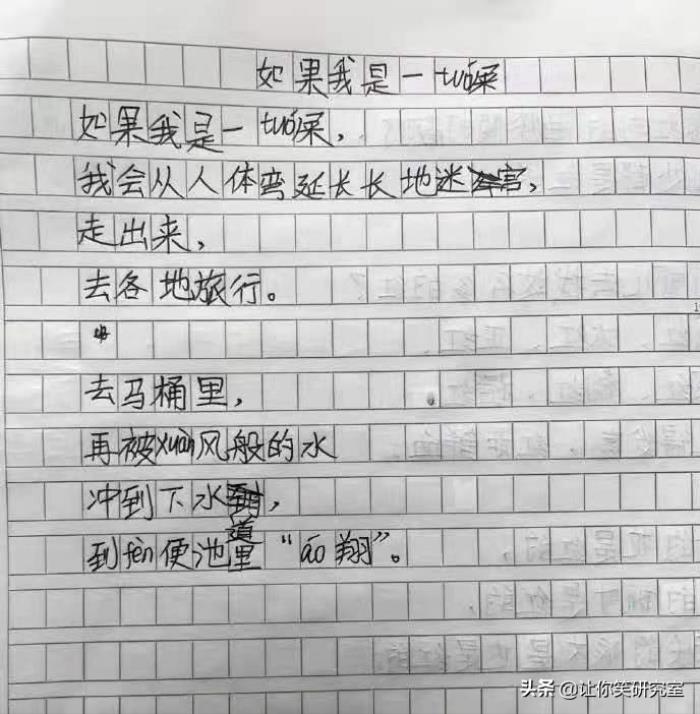 如果我是一tuó屎
如果我是一tuó屎，
我会从人体弯延长长地迷宫，
走出来，
去各地旅行。
去马桶里，
再被xuàn风般的水
冲到下水道，
到fèn便池里“áo翔”。
头条 @让你笑研究室